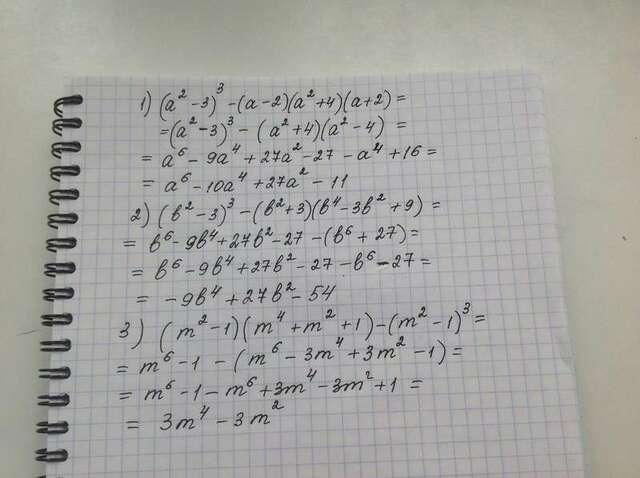 1) (a² - 3)³ - (a - 2)(a² + 4)(a + 2) =
= (a² - 3)³ - (a² + 4)(a² - 4) =
= a⁶ - 9a⁴ + 27a² - 27 - a⁴ + 16 =
= a⁶ - 10a⁴ + 27a² - 11
2) (в² - 3)³ - (в² + 3)(в⁴ - 3в² + 9) =
= в⁶ - 9в⁴ + 27в² - 27 - (в⁶ + 27) =
= в⁶ - 9в⁴ + 27в² - 27 - в⁶ - 27 =
= - 9в⁴ + 27в² - 54
3) (m² - 1)(m⁴ + m² + 1) - (m² - 1)³ =
= m⁶ - 1 - (m⁶ - 3m⁴ + 3m² - 1) =
= m⁶ - 1 - m⁶ + 3m⁴ - 3m² + 1 =
= 3m⁴ - 3m²